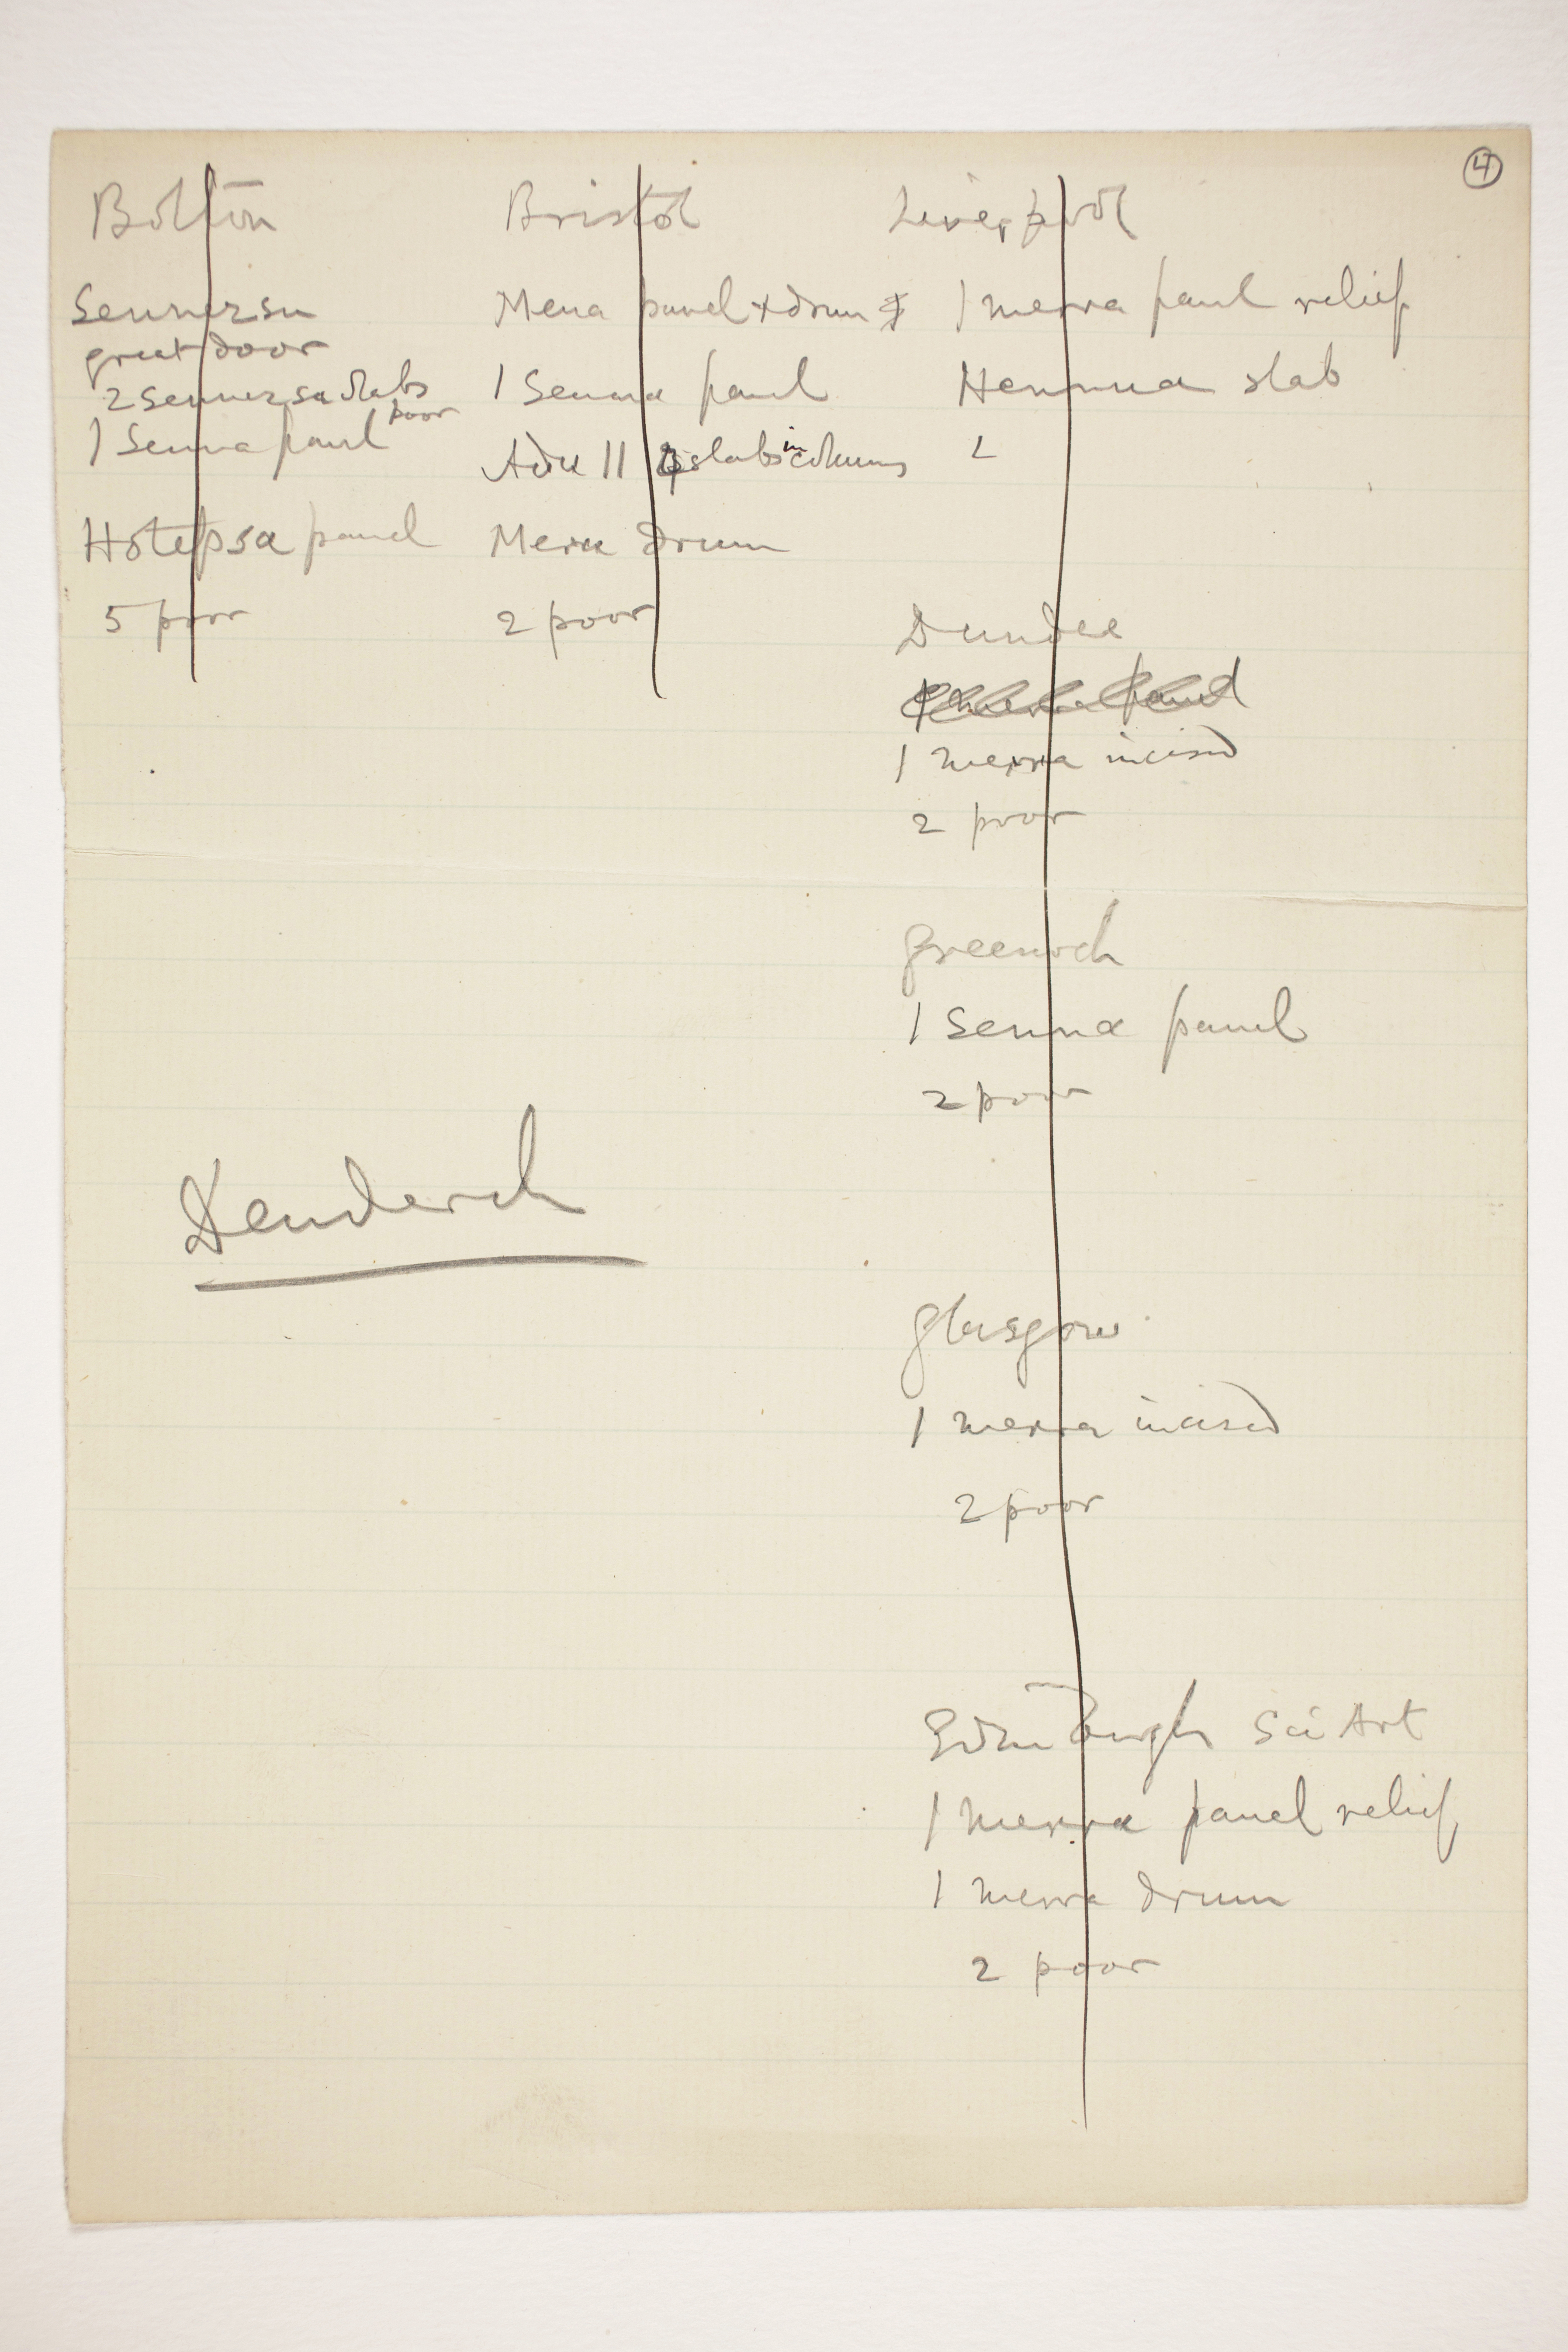 4
Bolton
Sennezsu
great door
2 Sennezsu slabs
poor
1 Senna panel
Hotepsa panel
5 poor
Bristol
Mena panel + drum
1 Senna panel
Adu II 4 slabs in columns
Mera drum
2 poor
Liverpool
1 merra panel relief
Hennua slab
2
Dundee
1 merra panel
1 merra incised
2 poor
Greenock
1 Senna panel
2 poor
Glasgow
1 merra incised
2 poor
Edinburgh Sci Art
1 merra panel relief
1 merra drum
2 poor
Denderah